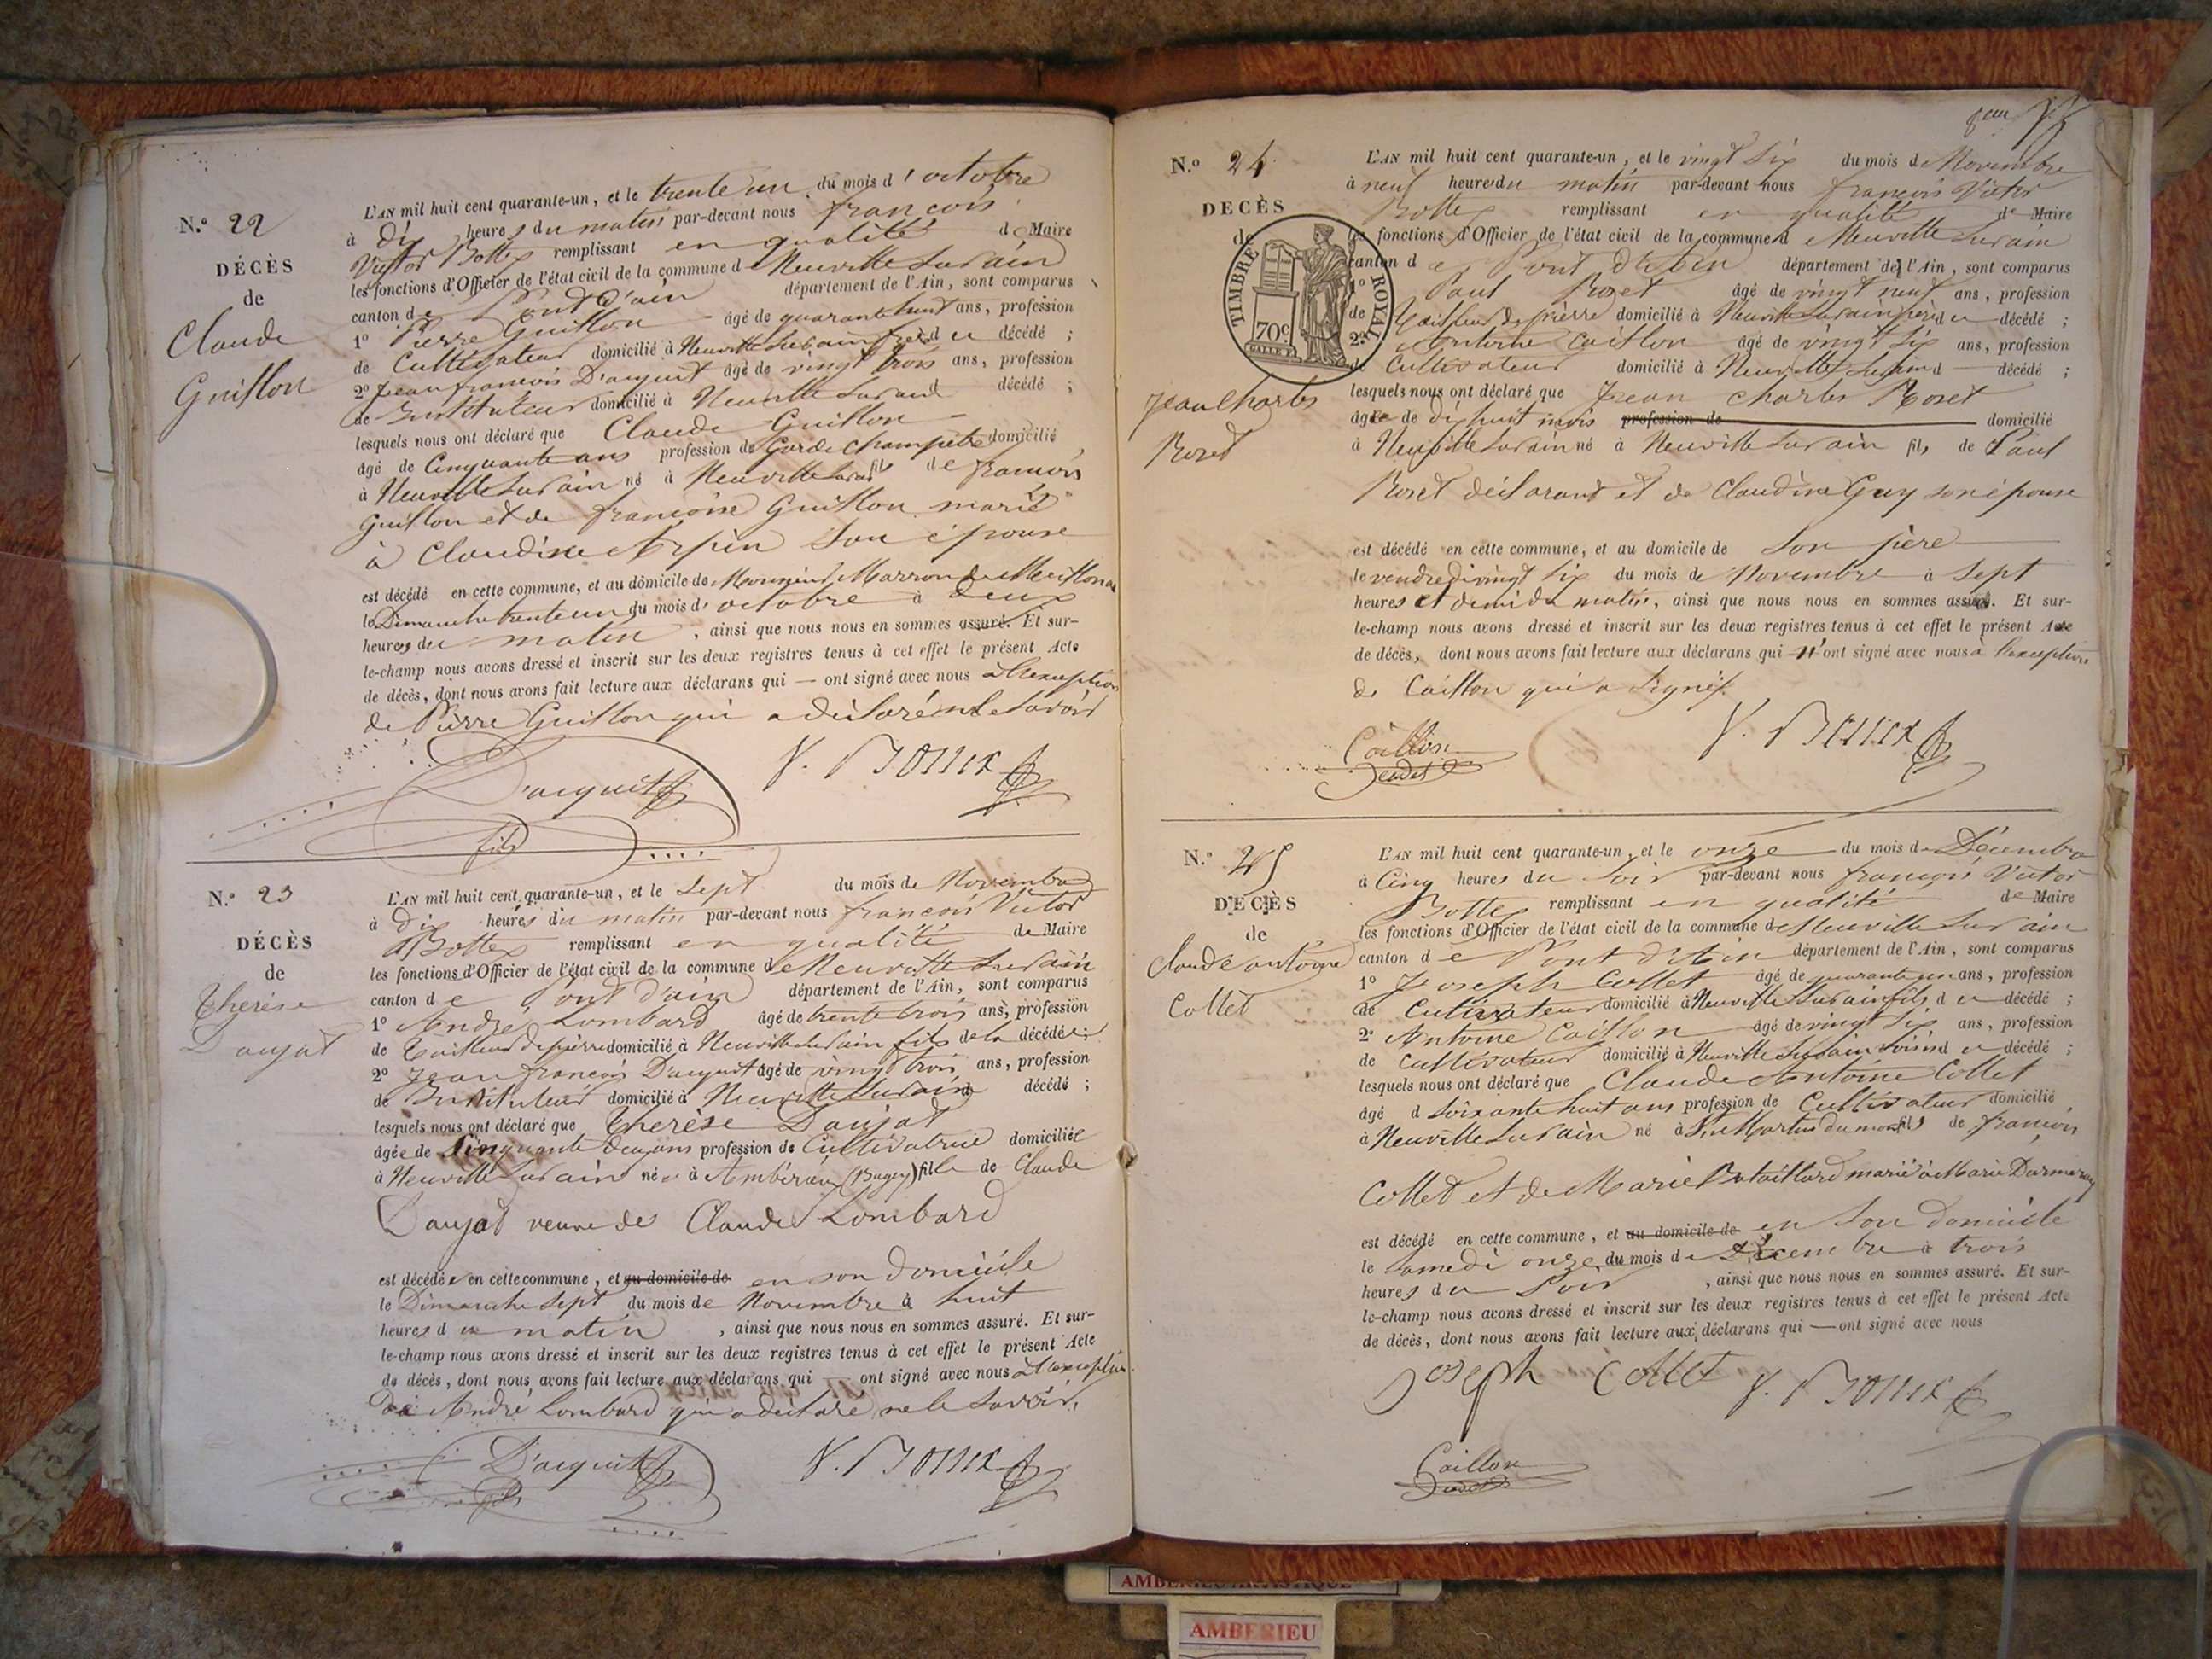 N.º 22
DÉCÈS
de
Claude
Guillon
L'AN mil huit cent quarante-un, et le trente un du mois d'octobre
à dix heures du matin par-devant nous françois
Victor Bottex remplissant en qualité de Maire
les fonctions d'Officier de l'état civil de la commune de Neuville sur ain
canton de Pont d'ain département de l'Ain, sont comparus
1º Pierre Guillon âgé de quarante huit ans, profession
de Cultivateur domicilié à Neuville sur ain frère du décédé ;
2º Jean françois D'acquit âgé de vingt trois ans, profession
de Instituteur domicilié à Neuville sur ain d décédé ;
lesquels nous ont déclaré que Claude Guillon
âgé de Cinquante ans profession de Garde champetre domicilié
à Neuville sur ain né à Neuville sur ain fils de françois
Guillon et de françoise Guillon marié
à Claudine Arpin son épouse
est décédé en cette commune, et au domicile de Monsieur Marron de Meillonas
le Dimanche trente un du mois d'octobre à deux
heures du matin, ainsi que nous nous en sommes assuré. Et sur-
le-champ nous avons dressé et inscrit sur les deux registres tenus à cet effet le présent Acte
de décès, dont nous avons fait lecture aux déclarans qui — ont signé avec nous à l'exception
de Pierre Guillon qui a déclaré ne le savoir
D'acquit
fils
V. Bottex
N.º 23
DÉCÈS
de
Therèse
Daujat
L'AN mil huit cent quarante-un, et le sept du mois de Novembre
à Dix heures du matin par-devant nous françois Victor
Bottex remplissant en qualité de Maire
les fonctions d'Officier de l'état civil de la commune de Neuville sur ain
canton de Pont d'ain département de l'Ain, sont comparus
1º André Lombard âgé de trente trois ans, profession
de tailleur de pierre domicilié à Neuville sur ain fils de la décédée ;
2º Jean françois D'acquit âgé de vingt trois ans, profession
de Instituteur domicilié à Neuville sur ain d décédé ;
lesquels nous ont déclaré que Therèse Daujat
âgée de Cinquante deux ans profession de Cultivatrice domiciliée
à Neuville sur ain née à Ambérieux (Bugey) fille de Claude
Daujat veuve de Claude Lombard
est décédée en cette commune, et au domicile de en son domicile
le Dimanche sept du mois de Novembre à huit
heures du matin, ainsi que nous nous en sommes assuré. Et sur-
le-champ nous avons dressé et inscrit sur les deux registres tenus à cet effet le présent Acte
de décès, dont nous avons fait lecture aux déclarans qui ont signé avec nous à l'exception
de André Lombard qui a déclaré ne le savoir.
D'acquit
fils
V. Bottex
N.º 24
DECÈS
de
Jean Charles
Roset
TIMBRE ROYAL
70c.
L'AN mil huit cent quarante-un, et le vingt six du mois de Novembre
à neuf heures du matin par-devant nous françois Victor
Bottex remplissant en qualité de Maire
les fonctions d'Officier de l'état civil de la commune d Neuville sur ain
canton de Pont d'Ain département de l'Ain, sont comparus
1º Paul Roset âgé de vingt neuf ans, profession
de tailleur de pierre domicilié à Neuville sur ain père du décédé ;
2º Antoine Caillon âgé de vingt six ans, profession
de Cultivateur domicilié à Neuville sur ain d décédé ;
lesquels nous ont déclaré que Jean Charles Roset
âgée de dix huit mois profession de domicilié
à Neuville sur ain né à Neuville sur ain fils de Paul
Roset déclarant et de Claudine Guy son épouse
est décédé en cette commune, et au domicile de son père
le vendredi vingt six du mois de Novembre à sept
heures et demi du matin, ainsi que nous nous en sommes assuré. Et sur-
le-champ nous avons dressé et inscrit sur les deux registres tenus à cet effet le présent Acte
de décès, dont nous avons fait lecture aux déclarans qui n'ont signé avec nous à l'exception
de Caillon qui a signé
Caillon
V. Bottex
N.º 25
DÉCÈS
de
Claude antoine
Collet
L'AN mil huit cent quarante-un, et le onze du mois de Décembre
à Cinq heures du soir par-devant nous françois Victor
Bottex remplissant en qualité de Maire
les fonctions d'Officier de l'état civil de la commune de Neuville sur ain
canton de Pont d'Ain département de l'Ain, sont comparus
1º Joseph Collet âgé de quarante un ans, profession
de Cultivateur domicilié à Neuville sur ain fils du décédé ;
2º Antoine Caillon âgé de vingt six ans, profession
de Cultivateur domicilié à Neuville sur ain voisin du décédé ;
lesquels nous ont déclaré que Claude Antoine Collet
âgé d soixante huit ans profession de Cultivateur domicilié
à Neuville sur ain né à St Martin du mont fils de françois
Collet et de Marie Bataillard marié à Marie
est décédé en cette commune, et au domicile de en son domicile
le samedi onze du mois de Décembre à trois
heures du soir, ainsi que nous nous en sommes assuré. Et sur-
le-champ nous avons dressé et inscrit sur les deux registres tenus à cet effet le présent Acte
de décès, dont nous avons fait lecture aux déclarans qui — ont signé avec nous
Joseph Collet
V. Bottex
Caillon
AMBERIEU